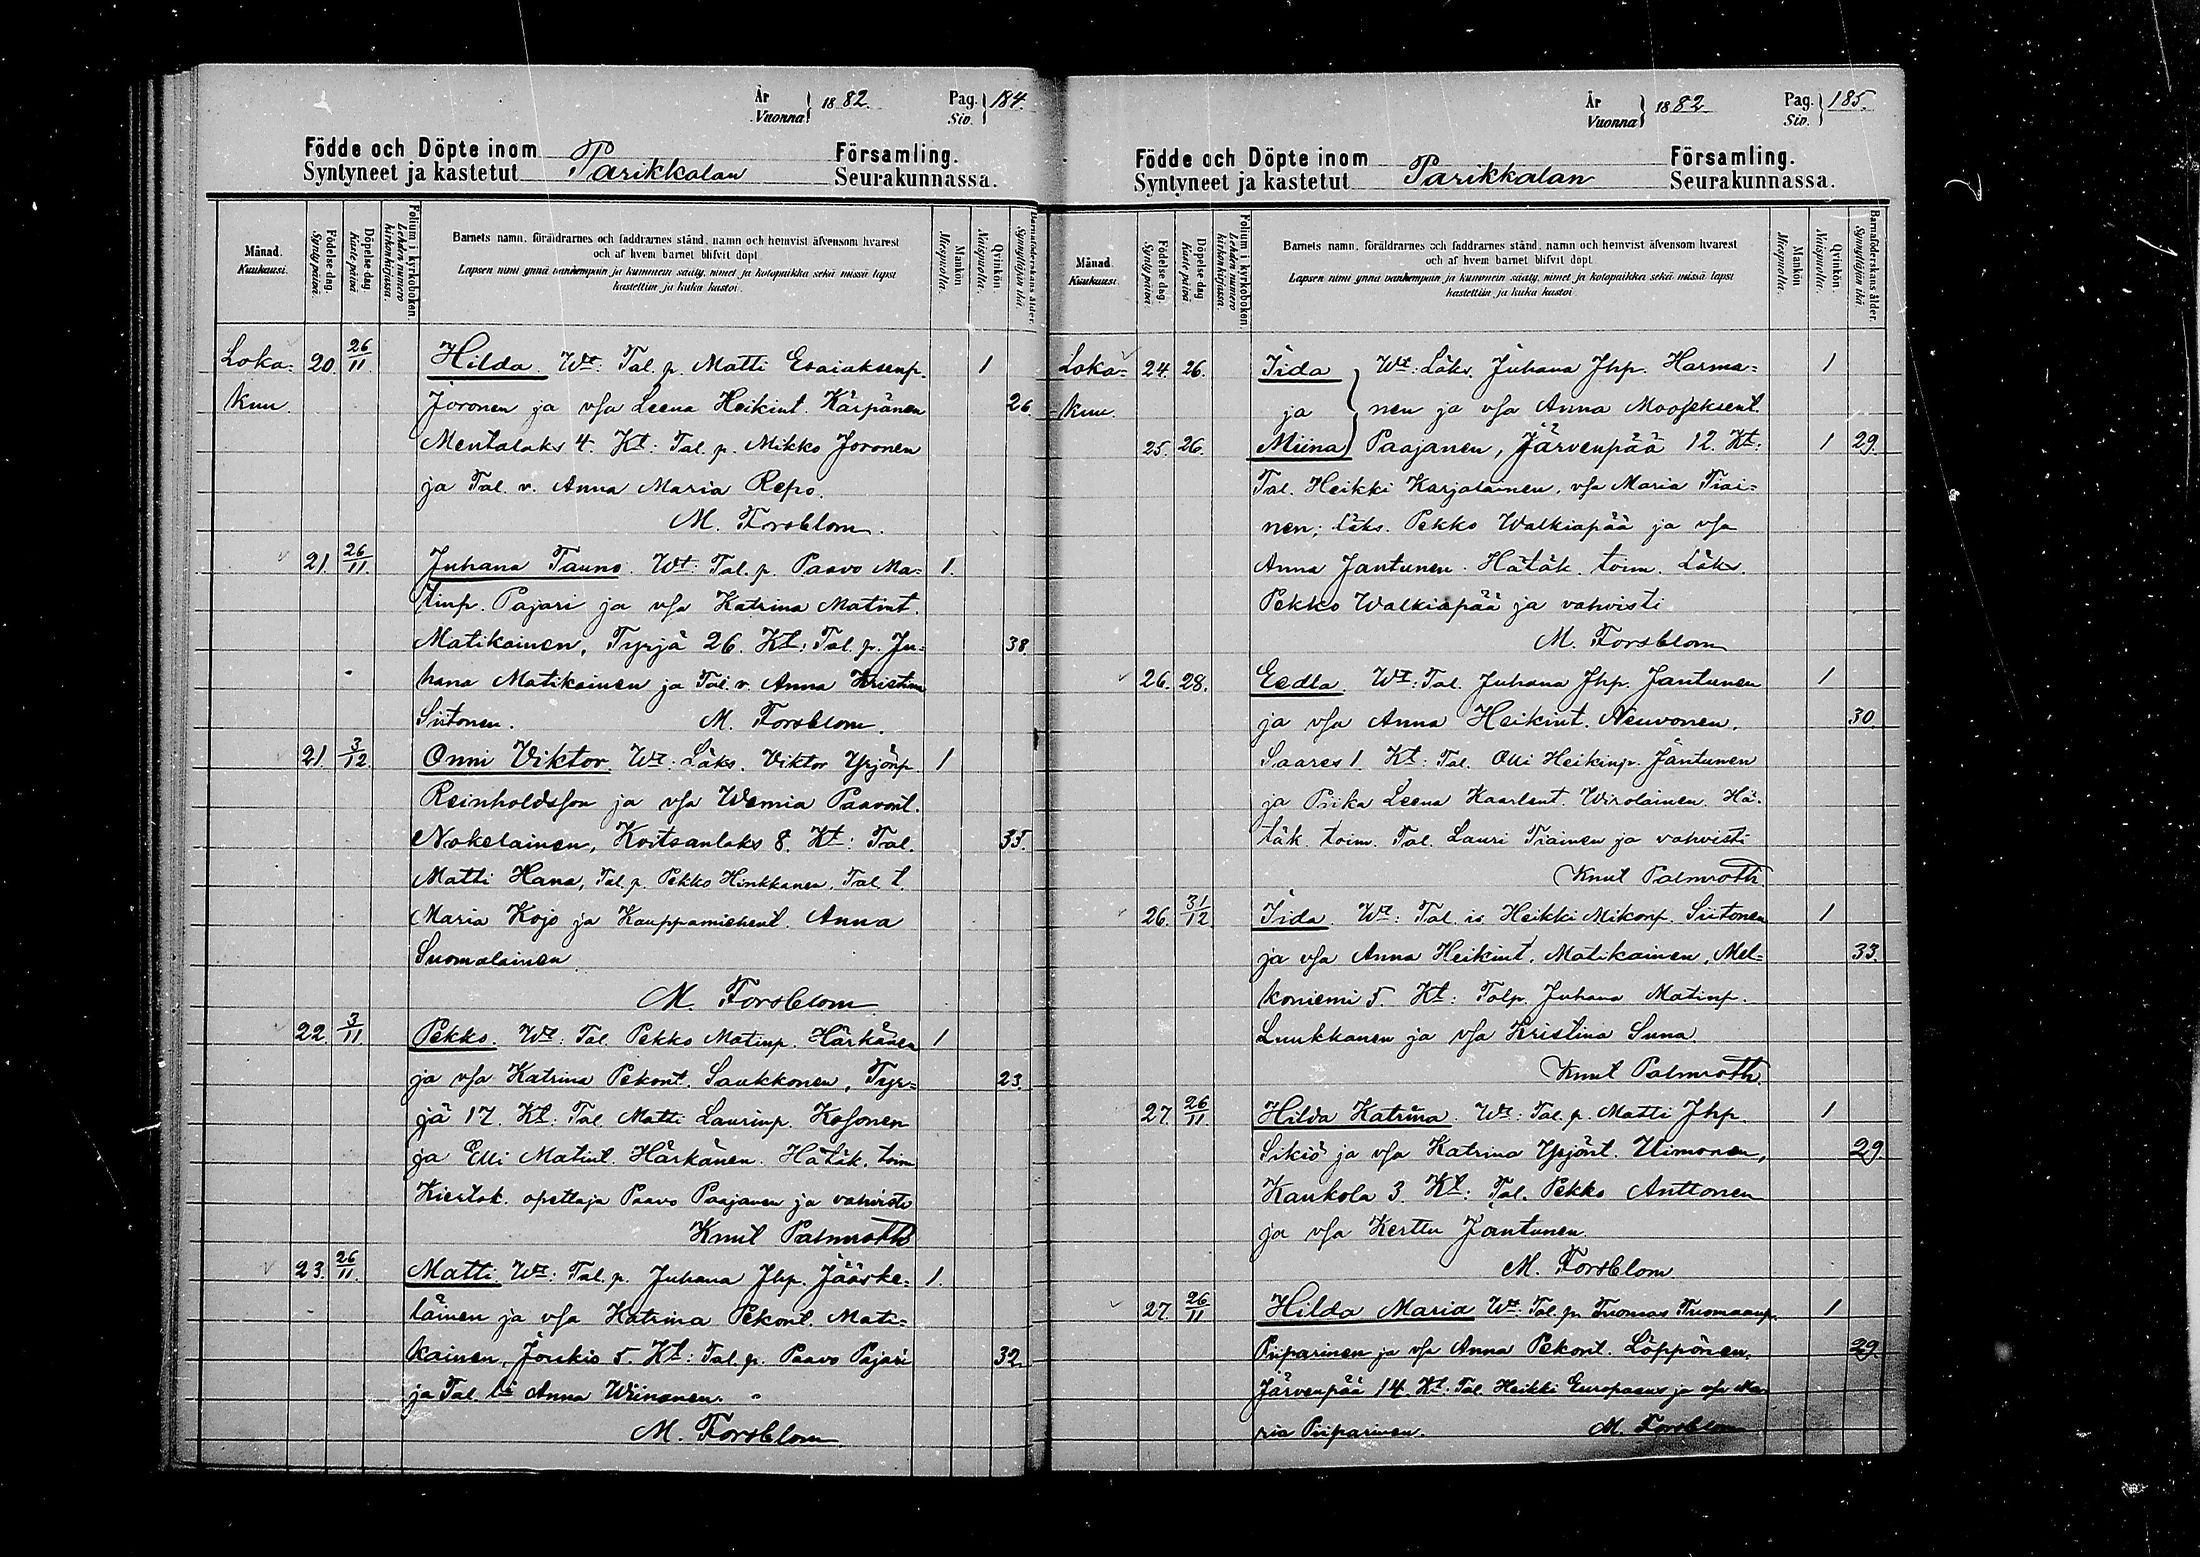 År Vuonna } 1882. Pag. Siv. } 184.
Födde och Döpte inom Församling.
Syntyneet ja kastetut Parikkalan Seurakunnassa.
Månad. Kuukausi. Födelse dag. Synty päivä. Döpelse dag. Kaste päivä. Folium i kyrkoboken. Lehden numero kirkonkirjassa. Barnets namn, föräldrarnes och faddrarnes stånd, namn och hemvist äfvensom hvarest och af hvem barnet blifvit döpt. Lapsen nimi ynnä vanhempain ja kummein sääty, nimet ja kotopaikka sekä missä lapsi kastettiin ja kuka kastoi. Mankön Miespuolia. Qvinkön. Naispuolia. Barnaföderskans ålder. Synnyttäjän ikä.
Loka- 20. 26/11 Hilda. Wt: Tal. p. Matti Esaiaksenp. 1
kuu. Joronen ja vsa Leena Heikint. Kärpänen 26
Mentalaks 4. Kt: Tal. p. Mikko Joronen
ja Tal. v. Anna Maria Repo.
M. Forsblom.
21. 26/11. Juhana Tauno. Wt: Tal. p. Paavo Ma- 1.
tinp. Pajari ja vsa Katrina Matint.
Matikainen, Tyrjä 26. Kt: Tal. p. Ju- 38.
hana Matikainen ja Tal. v. Anna Kristina
Siitonen. M. Forsblom.
21. 3/12. Onni Viktor. Wt: Läks. Viktor Yrjönp. 1
Reinholdsson ja vsa Wernia Paavont.
Nokelainen, Koitsanlaks 8. Kt: Tal. 35.
Matti Hana, Tal. p. Pekko Hinkkanen, Tal. t.
Maria Kojo ja Kauppamiehent. Anna
Suomalainen
M. Forsblom
22. 3/11. Pekko. Wt: Tal. Pekko Matinp. Härkänen 1
ja vsa Katrina Pekont. Saukkonen, Tyr- 23.
jä 17. Kt: Tal. Matti Laurinp. Kosonen
ja Elli Matint. Härkänen. Hätäk. toim
Kiertok. opettaja Paavo Paajanen ja vahvisti
Knut Palmroth
23. 26/11. Matti. Wt: Tal. p. Juhana Jhp. Jääske- 1.
läinen ja vsa Katrina Pekont. Mati-
kainen, Joukio 5. Kt: Tal. p. Paavo Pajari 32.
ja Tal. Anna Wiinanen.
M. Forsblom
År Vuonna } 1882 Pag. Siv. } 185.
Födde och Döpte inom Församling.
Syntyneet ja kastetut Parikkalan Seurakunnassa.
Månad. Kuukausi. Födelse dag. Synty päivä. Döpelse dag Kaste päivä. Folium i kyrkoboken. Lehden numero kirkonkirjassa. Barnets namn, föräldrarnes och faddrarnes stånd, namn och hemvist äfvensom hvarest och af hvem barnet blifvit döpt. Lapsen nimi ynnä vanhempain ja kummein sääty, nimet ja kotopaikka sekä missä lapsi kastettiin ja kuka kastoi. Mankön Miespuolia. Qvinkön. Naispuolia. Barnaföderskans ålder. Synnyttäjän ikä.
Loka- 24. 26. Iida Wt: Läks. Juhana Jhp. Harma- 1
kuu. ja nen ja vsa Anna Mooseksent.
25. 26. Miina Paajanen, Järvenpää 12. Kt: 1 29.
Tal. Heikki Karjalainen, vsa Maria Tiai-
nen; läks. Pekko Walkiapää ja vsa
Anna Jantunen. Hätäk. toim. Läks.
Pekko Walkiapää ja vahvisti
M. Forsblom
26. 28. Eedla. Wt: Tal. Juhana Jhp. Jantunen 1
ja vsa Anna Heikint. Neuvonen. 30.
Saares 1. Kt: Tal. Olli Heikinp. Jantunen
ja Piika Leena Kaarlent. Wirolainen. Hä-
täk. toim. Tal. Lauri Tiainen ja vahvisti
Knut Palmroth.
26. 31/12. Iida. Wt: Tal. is Heikki Mikonp. Siitonen 1
ja vsa Anna Heikint. Matikainen, Mel- 33.
koniemi 5. Kt: Talp. Juhana Matinp.
Luukkanen ja vsa Kristina Suna.
Knut Palmroth.
27. 26/11. Hilda Katrina. Wt: Tal. p. Matti Jhp. 1
Sikiö ja vsa Katrina Yrjönt. Uimonen, 29.
Kaukola 3. Kt: Tal. Pekko Anttonen
ja vsa Kerttu Jantunen.
M. Forsblom
27. 26/11 Hilda Maria Wt: Tal. p. Tuomas Tuomaanp. 1
Piiparinen ja vsa Anna Pekont. Löppönen, 29.
Järvenpää 14. Kt: Tal. Heikki Europaeus ja vsa Ma-
ria Piiparinen. M. Forsblom